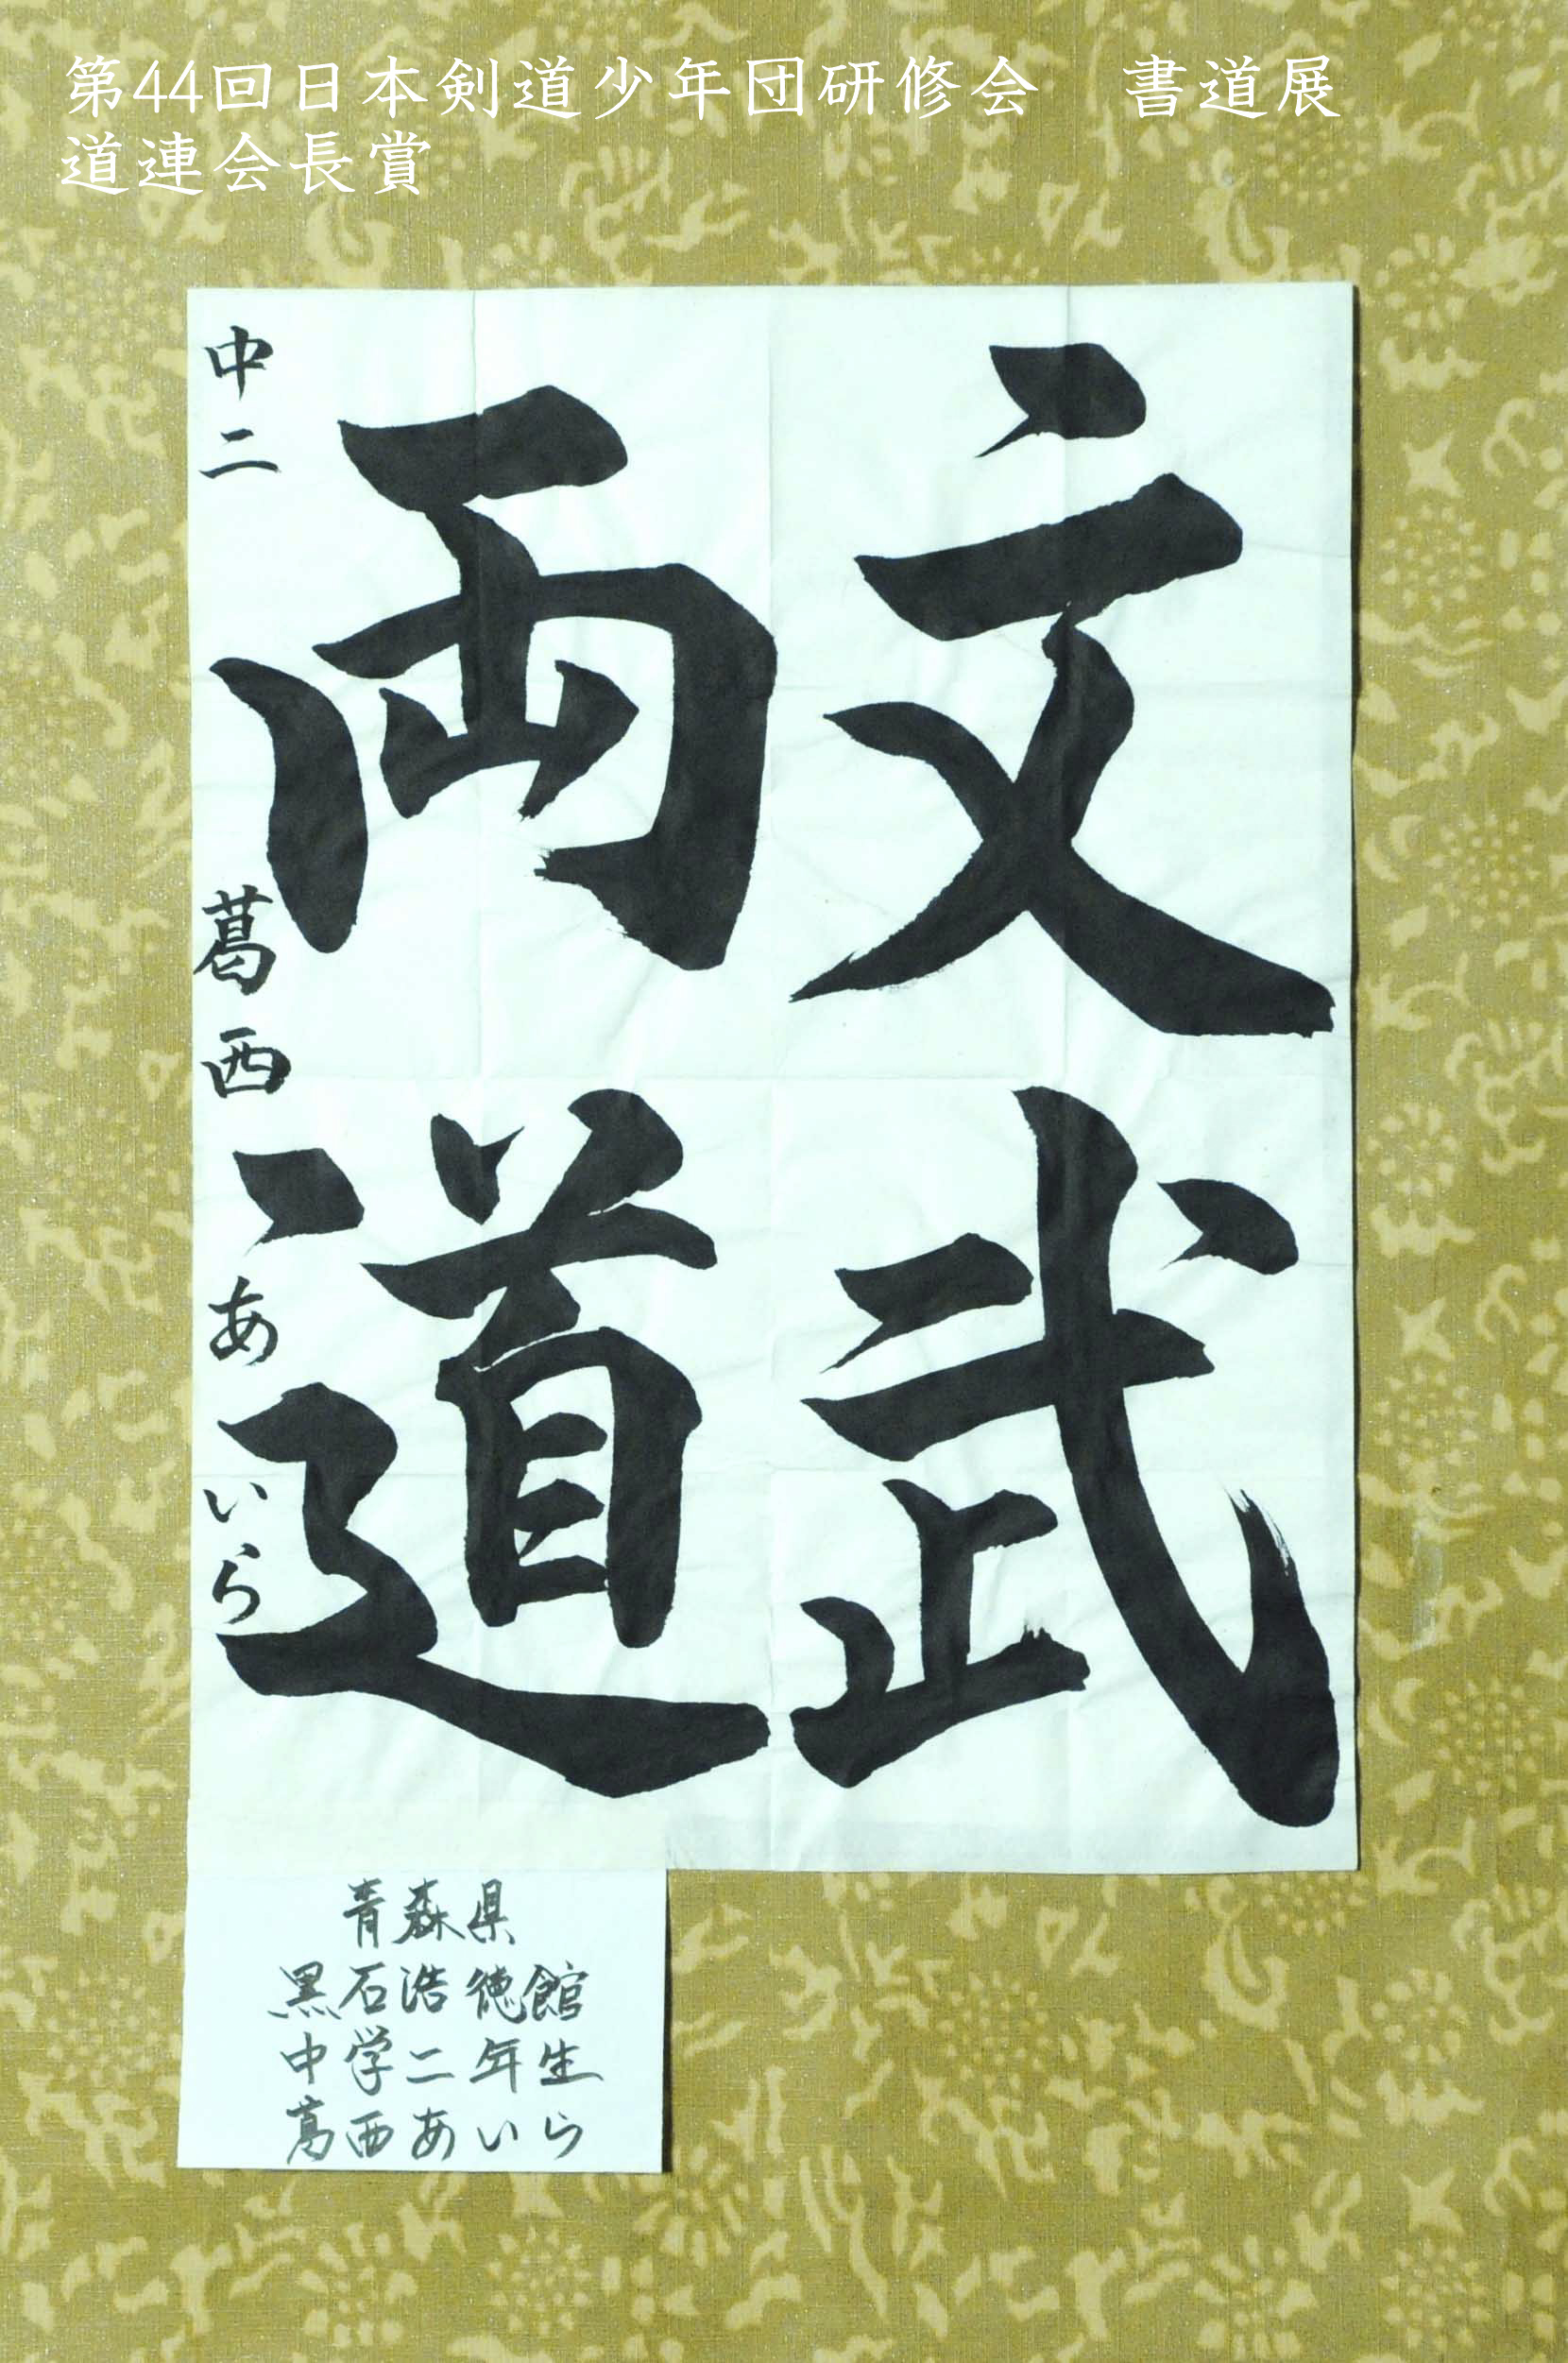 第44回日本剣道少年団研修会　書道展
道連会長賞
文武
両道
中二　葛西あいら
青森県
黒石浩徳館
中学二年生
葛西あいら